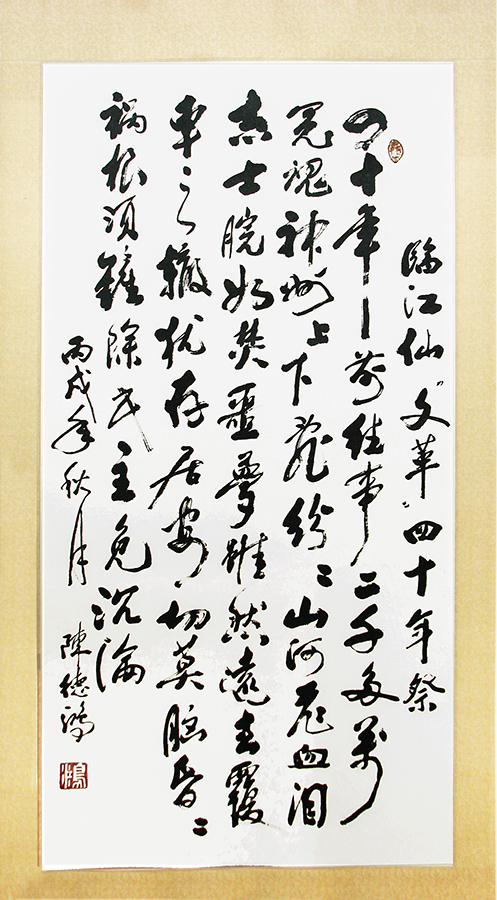 臨江仙"文革"四十年祭
四十年前往事二千多萬
冤魂神州上下亂紛〻山河飛血泪
志士脘如焚噩夢雖然遠去覆
車之轍猶存居安切莫腦昏〻
禍根須鏟除民主免沉淪
丙戌年秋月
陳德鴻